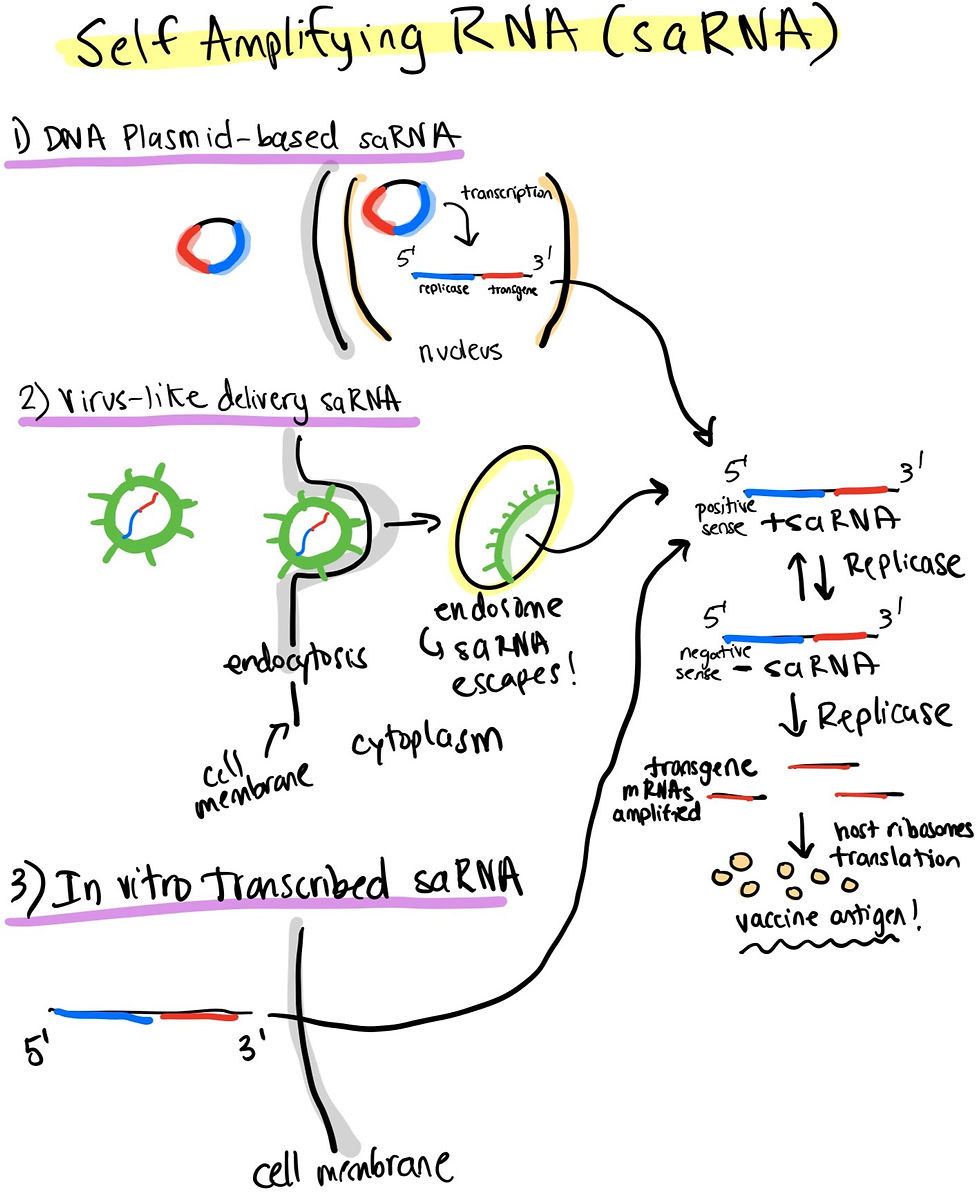 Self Amplifying RNA (saRNA)
1) DNA Plasmid-based saRNA
transcription
5'
3'
replicase
transgene
nucleus
2) Virus-like delivery saRNA
endocytosis
cell
membrane
cytoplasm
endosome
↳ saRNA
escapes!
5'
3'
positive
sense
+saRNA
Replicase
5'
3'
negative
sense
- saRNA
Replicase
transgene
mRNAs
amplified
host ribosomes
translation
vaccine antigen!
3) In vitro transcribed saRNA
5'
3'
cell membrane